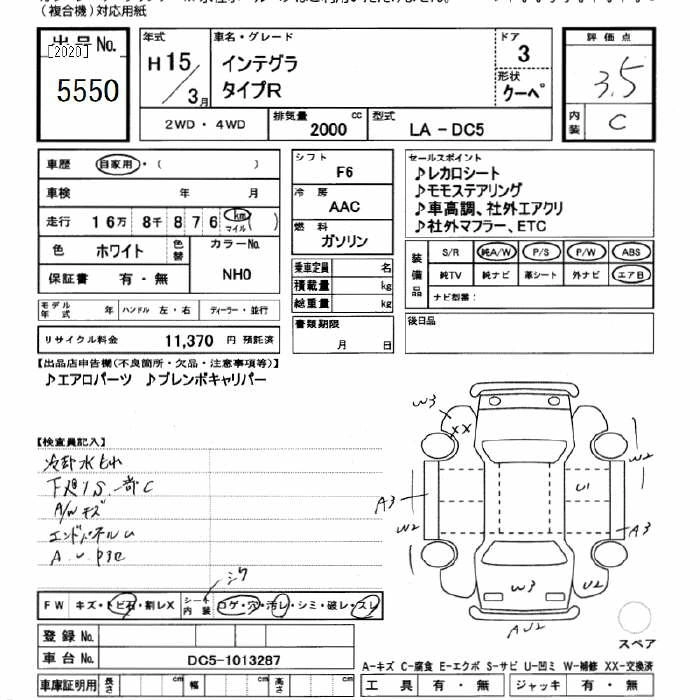 (複合機)対応用紙
出品No.
[2020]
5550
年式
H15/3月
車名・グレード
インテグラ
タイプR
ドア
3
形状
クーペ
評価点
3.5
内装
C
2WD・4WD
排気量
2000 cc
型式
LA-DC5
車歴 自家用・( )
車検 年 月
走行 16万 8千 876 km マイル ( )
色 ホワイト 色替
カラーNo.
NH0
保証書 有・無
モデル年式 年 ハンドル 左・右 ディーラー・並行
リサイクル料金 11,370 円 預託済
シフト
F6
冷房
AAC
燃料
ガソリン
乗車定員 名
積載量 kg
総重量 kg
書類期限
月 日
セールスポイント
♪レカロシート
♪モモステアリング
♪車高調、社外エアクリ
♪社外マフラー、ETC
装備品
S/R 純A/W P/S P/W ABS
純TV 純ナビ 革シート 外ナビ エアB
ナビ型番:
後日品
【出品店申告欄(不良箇所・欠品・注意事項等)】
♪エアロパーツ ♪ブレンボキャリパー
【検査員記入】
冷却水もれ
下廻りS.一部C
A/Wキズ
エンドパネルU
W3
XX
W2
A3
W2
U1
A3
W3
U2
AU2
シワ
FW キズ・トビ石・割レX シート内装 コゲ・穴・汚レ・シミ・破レ・スレ
登録No.
車台No. DC5-1013287
車庫証明用 長さ cm 幅 cm 高さ cm
スペア
A-キズ C-腐食 E-エクボ S-サビ U-凹ミ W-補修 XX-交換済
工具 有・無 ジャッキ 有・無